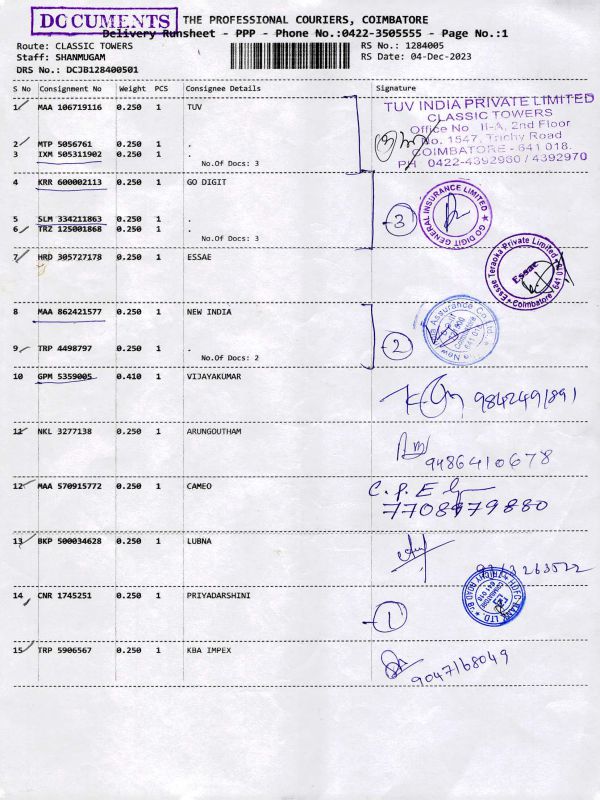 DOCUMENTS THE PROFESSIONAL COURIERS, COIMBATORE
Delivery Runsheet - PPP - Phone No.:0422-3505555 - Page No.:1
Route: CLASSIC TOWERS RS No.: 1284005
Staff: SHANMUGAM RS Date: 04-Dec-2023
DRS No.: DCJB128400501
S No Consignment No Weight PCS Consignee Details Signature
1 MAA 106719116 0.250 1 TUV
TUV INDIA PRIVATE LIMITED
CLASSIC TOWERS
Office No II-A, 2nd Floor
No. 1547, Trichy Road
COIMBATORE - 641 018.
PH 0422-4392960 / 4392970
2 MTP 5056761 0.250 1 .
3 IXM 505311902 0.250 1 .
No.Of Docs: 3
4 KRR 600002113 0.250 1 GO DIGIT
3
GO DIGIT GENERAL INSURANCE LIMITED
5 SLM 334211863 0.250 1 .
6 TRZ 125001868 0.250 1 .
No.Of Docs: 3
7 HRD 305727178 0.250 1 ESSAE
Essae Teraoka Private Limited
Essae
Coimbatore 641 018
8 MAA 862421577 0.250 1 NEW INDIA
2
Assurance Co. Ltd.
9 TRP 4498797 0.250 1 .
No.Of Docs: 2
10 GPM 5359005 0.410 1 VIJAYAKUMAR
9842491891
11 NKL 3277138 0.250 1 ARUNGOUTHAM
9486410678
12 MAA 570915772 0.250 1 CAMEO
C. P. E
7708979880
13 BKP 500034628 0.250 1 LUBNA
14 CNR 1745251 0.250 1 PRIYADARSHINI
1
HDFC BANK LTD.
TRICHY ROAD
15 TRP 5906567 0.250 1 KBA IMPEX
9047168049